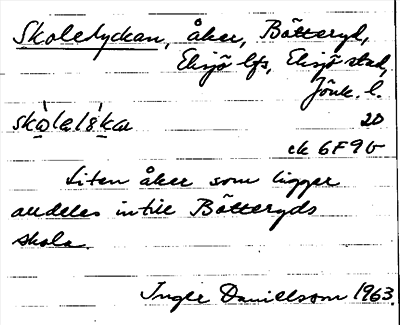 Skolelyckan, åker, Bötteryd,
Eksjö lfs, Eksjö stad,
Jönk. l.
skòlelỳkan 20
ek 6F9b
Liten åker som ligger
alldeles intill Bötteryds
skola.
Ingle Danielsson 1963.